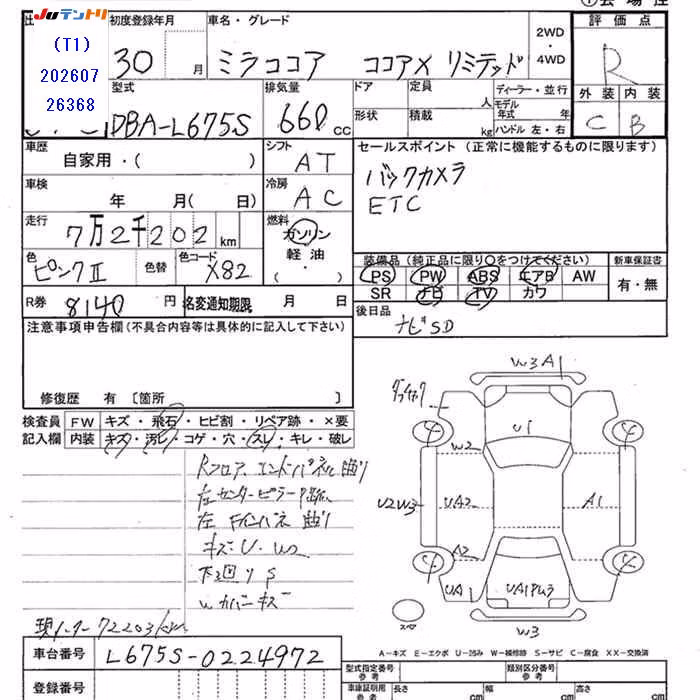 Juテントリ
(T1)
202607
26368
初度登録年月
車名・グレード
30 月
ミラココア ココアX リミテッド
2WD
・
4WD
評価点
R
外装 内装
C B
型式
DBA-L675S
排気量
660 cc
ドア
定員 人
ディーラー・並行
形状
積載 kg
モデル年式 年
ハンドル 左・右
車歴
自家用・( )
シフト
AT
セールスポイント (正常に機能するものに限ります)
バックカメラ
ETC
車検
年 月( 日)
冷房
AC
走行
7万2千202 km
燃料
ガソリン
軽油
( ・ )
色
ピンクII
色替
色コード
X82
装備品 (純正品に限り○をつけてください)
PS PW ABS エアB AW
SR ナビ TV カワ
新車保証書
有・無
R券 8140 円
名変通知期限 月 日
後日品
ナビSD
注意事項申告欄(不具合内容等は具体的に記入して下さい)
修復歴 有 [箇所 ]
検査員
記入欄
FW キズ・飛石・ヒビ割・リペア跡・×要
内装 キズ・汚レ・コゲ・穴・スレ・キレ・破レ
Rフロア、エンドパネル曲り
左センターピラー
左 Fインパネ 曲り
キズ・U・W2
下回りS
Wカバーキズ
W3A1
U1
W2
U2W3
UA2
A1
A2
UA1
W3
スペア
A-キズ E-エクボ U-凹み W-補修跡 S-サビ C-腐食 XX-交換済
現メーター72203km
車台番号 L675S-0224972
登録番号
型式指定番号
参考
類別区分番号
参考
車庫証明用
参考
長さ cm
幅 cm
高さ cm